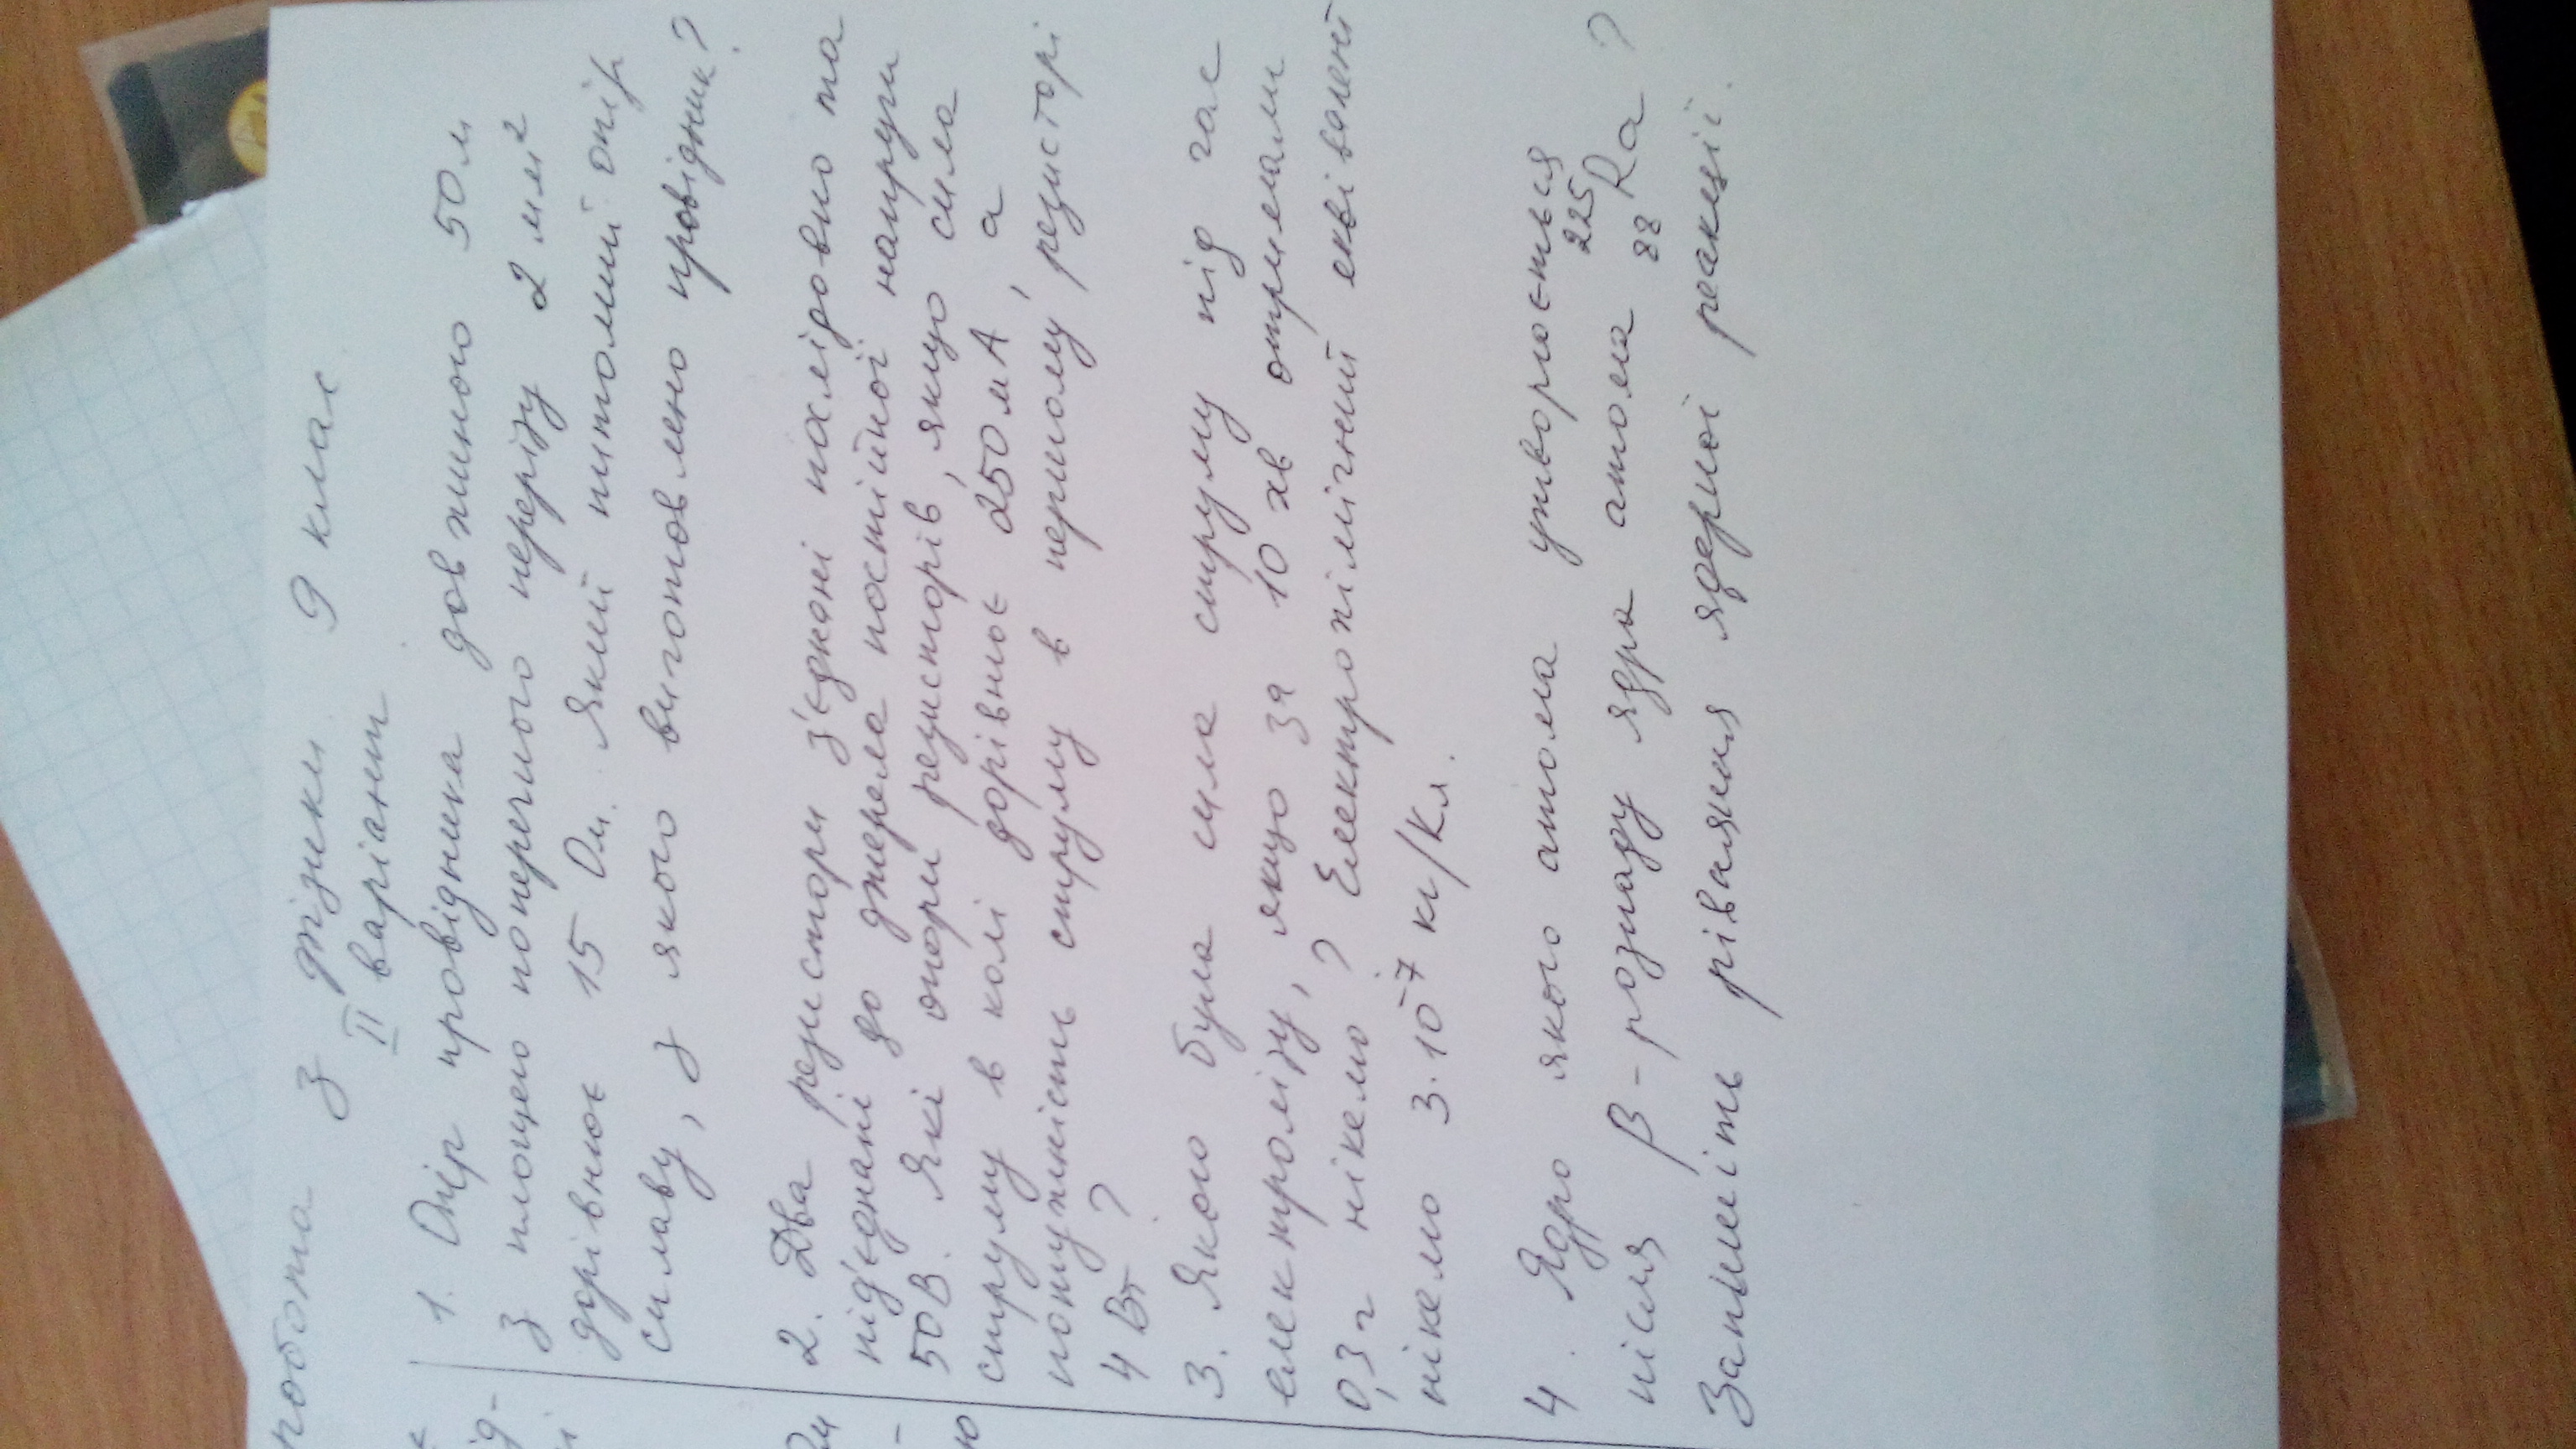 робота з фізики 9 клас
II варіант
1. Опір провідника довжиною 50 м
з площею поперечного перерізу 2 мм²
дорівнює 15 Ом. Який питомий опір
сплаву, з якого виготовлено провідник?
2. Два резистори з'єднані послідовно та
під'єднані до джерела постійної напруги
50В. Які опори резисторів, якщо сила
струму в колі дорівнює 250 мА, а
потужність струму в першому резисторі
4 Вт?
3. Якою була сила струму під час
електролізу, якщо за 10 хв отримали
0,3 г нікелю? Електрохімічний еквівалент
нікелю 3·10⁻⁷ кг/Кл.
4. Ядро якого атома утворюється
після β-розпаду ядра атома ²²⁵₈₈Ra?
Запишіть рівняння ядерної реакції.